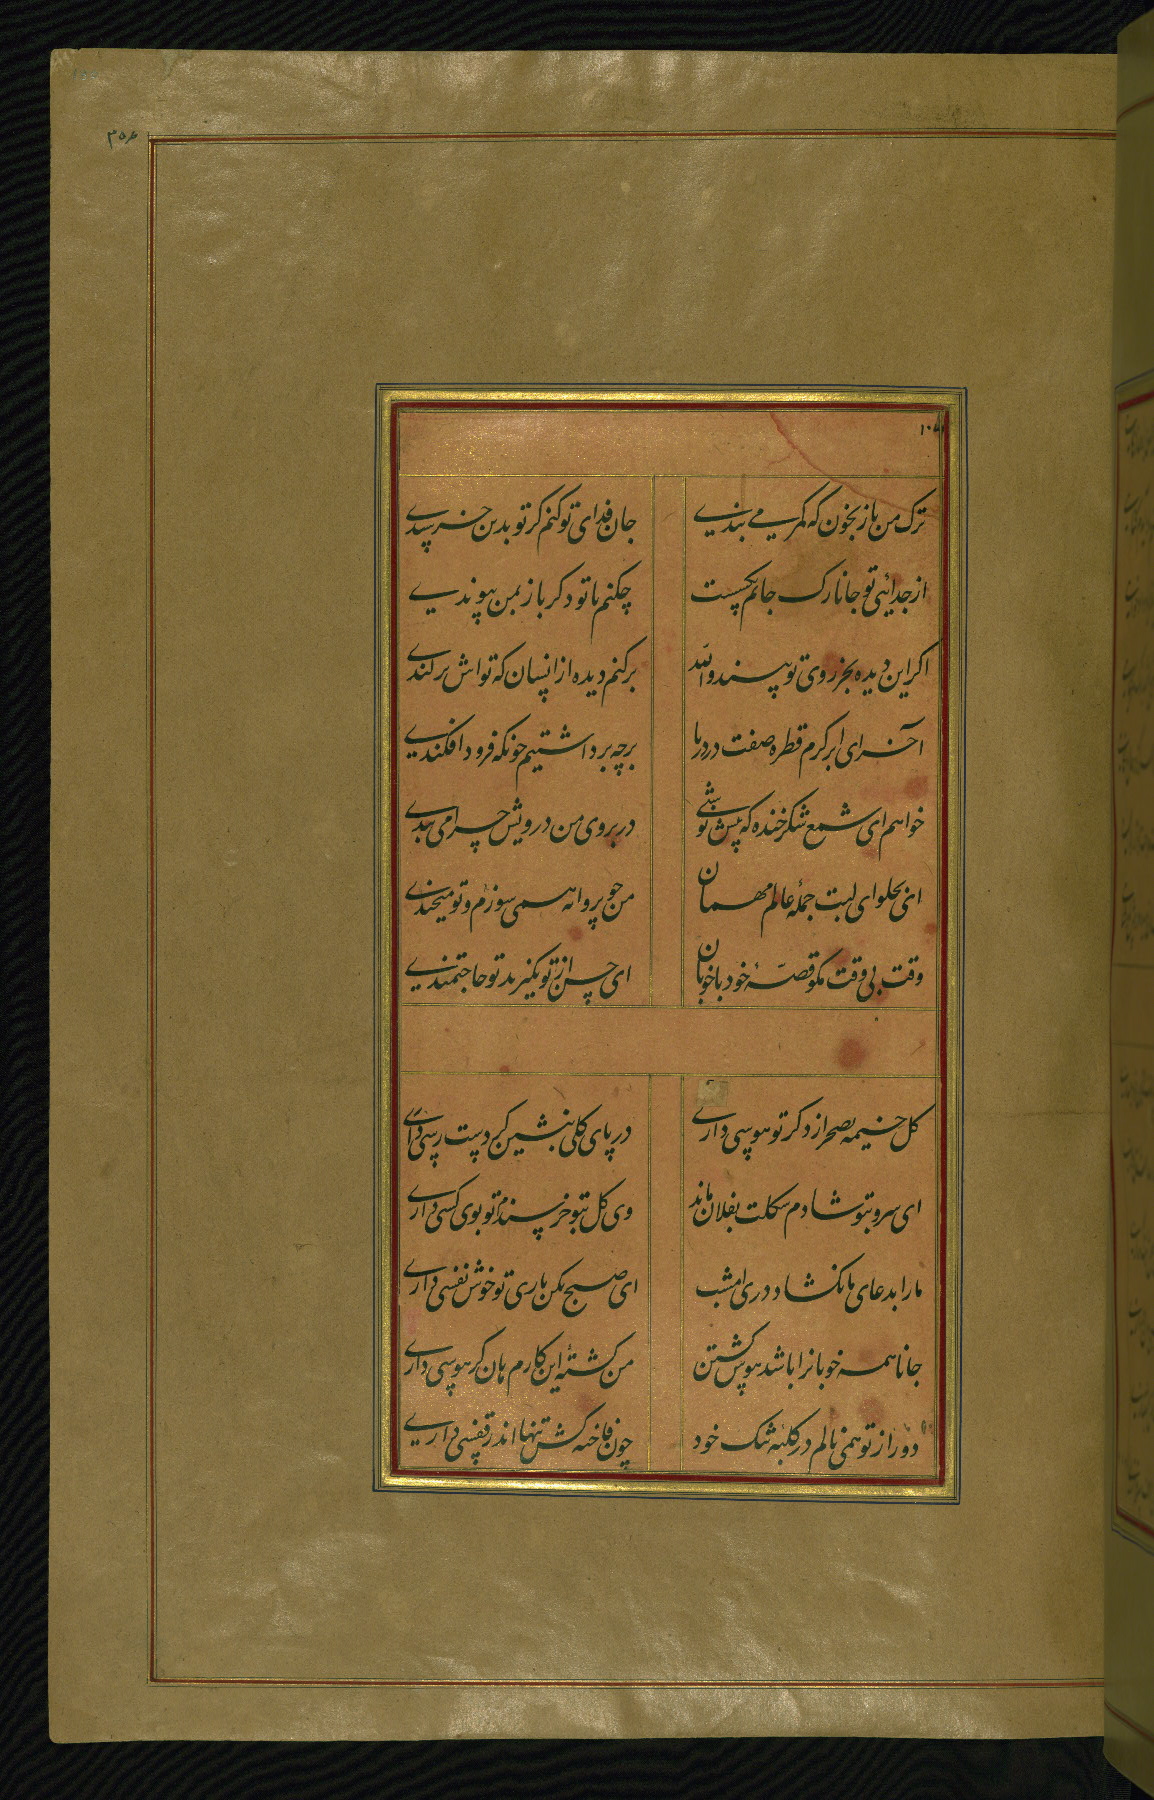 ۳۵۶
ترک من باز بخون که کمر می بندی جان فدای تو کنم گر تو بدین خرسندی
از جدائی تو جانا رک جانم بکسست چکنم با تو دکر باز بمن پیوندی
اکر این دیده بجز روی تو بیند والله برکنم دیده از انسان که تواش برکندی
آخر ای ابر کرم قطره صفت در دریا برچه برداشتیم چونکه فرود افکندی
خواهم ای شمع شکر خنده که پیش تو شبی در بروی من درویش چرا می بندی
انی بحلوای لبت جملهٔ عالم مهمان من چو پروانه همی سوزم و تو میخندی
وقت بی وقت مکو قصّهٔ خود با خوبان ای حسن از تو بکیرند تو حاجتمندی
کل خیمه بصحرا زد کر تو هوسی داری در پای کلی بنشین کر دست رسی داری
ای سرو بتو شادم شکلت بفلان ماند وی کل بتو خرسندم تو بوی کسی داری
ما را بدعای ما نکشاد دری امشب ای صبح بکن یاری تو خوش نفسی داری
جانا همه خوبانرا باشد هوس کشتن من کشتهٔ این کارم هان کر هوسی داری
دور از تو همی نالم در کلبهٔ تنک خود چون فاخته کش تنها اندر قفسی داری